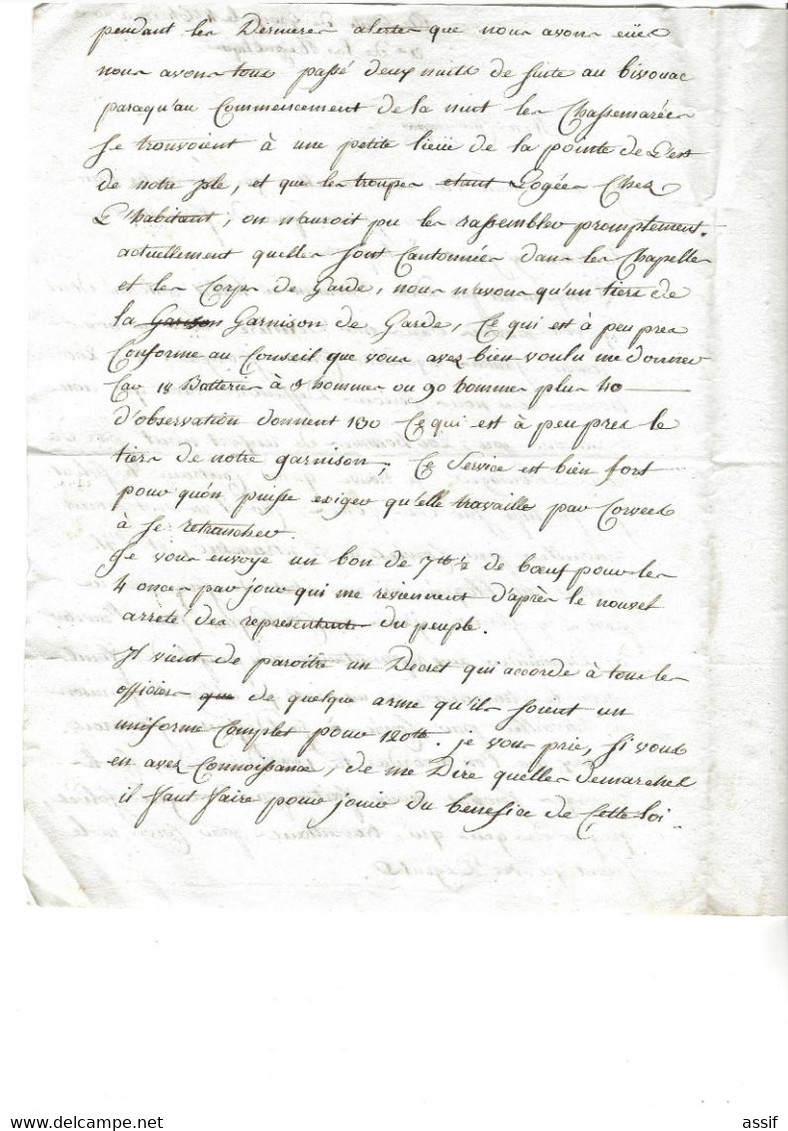 pendant les Dernieres alertes que nous avons eües
nous avons tous passé deux nuits de suite au bivouac
parcequ'au Commencement de la nuit les Chassemarées
se trouvoient à une petite lieüe de la pointe de L'est
de notre isle, et que les troupes etant Logées Chez
L'habitant, on n'auroit pu les rassembler promptement.
actuellement quelles sont Cantonnées dans les Chapelles
et les Corps de Garde, nous n'avons qu'un tiers de
la Garison Garnison de Garde, Ce qui est à peu pres
Conforme au Conseil que vous avez bien voulu me donner
Car 18 Batteries à 5 hommes ou 90 hommes plus 40
d'observation donnent 130 Ce qui est à peu pres le
tiers de notre garnison, Ce Service est bien fort
pour qu'on puisse exiger qu'elle travaille par Corvees
à se retrancher.
Je vous envoye un bon de 7tt ½ de bœuf pour les
4 onces par jour qui me reviennent d'après le nouvel
arreté des representants du peuple.
Il vient de paroitre un Decret qui accorde à tous les
officiers que de quelque arme qu'ils soient un
uniforme Complet pour 120tt. je vous prie, si vous
en avez Connoissance, de me Dire quelles demarches
il faut faire pour jouir du benefice de Cette loi.
assif